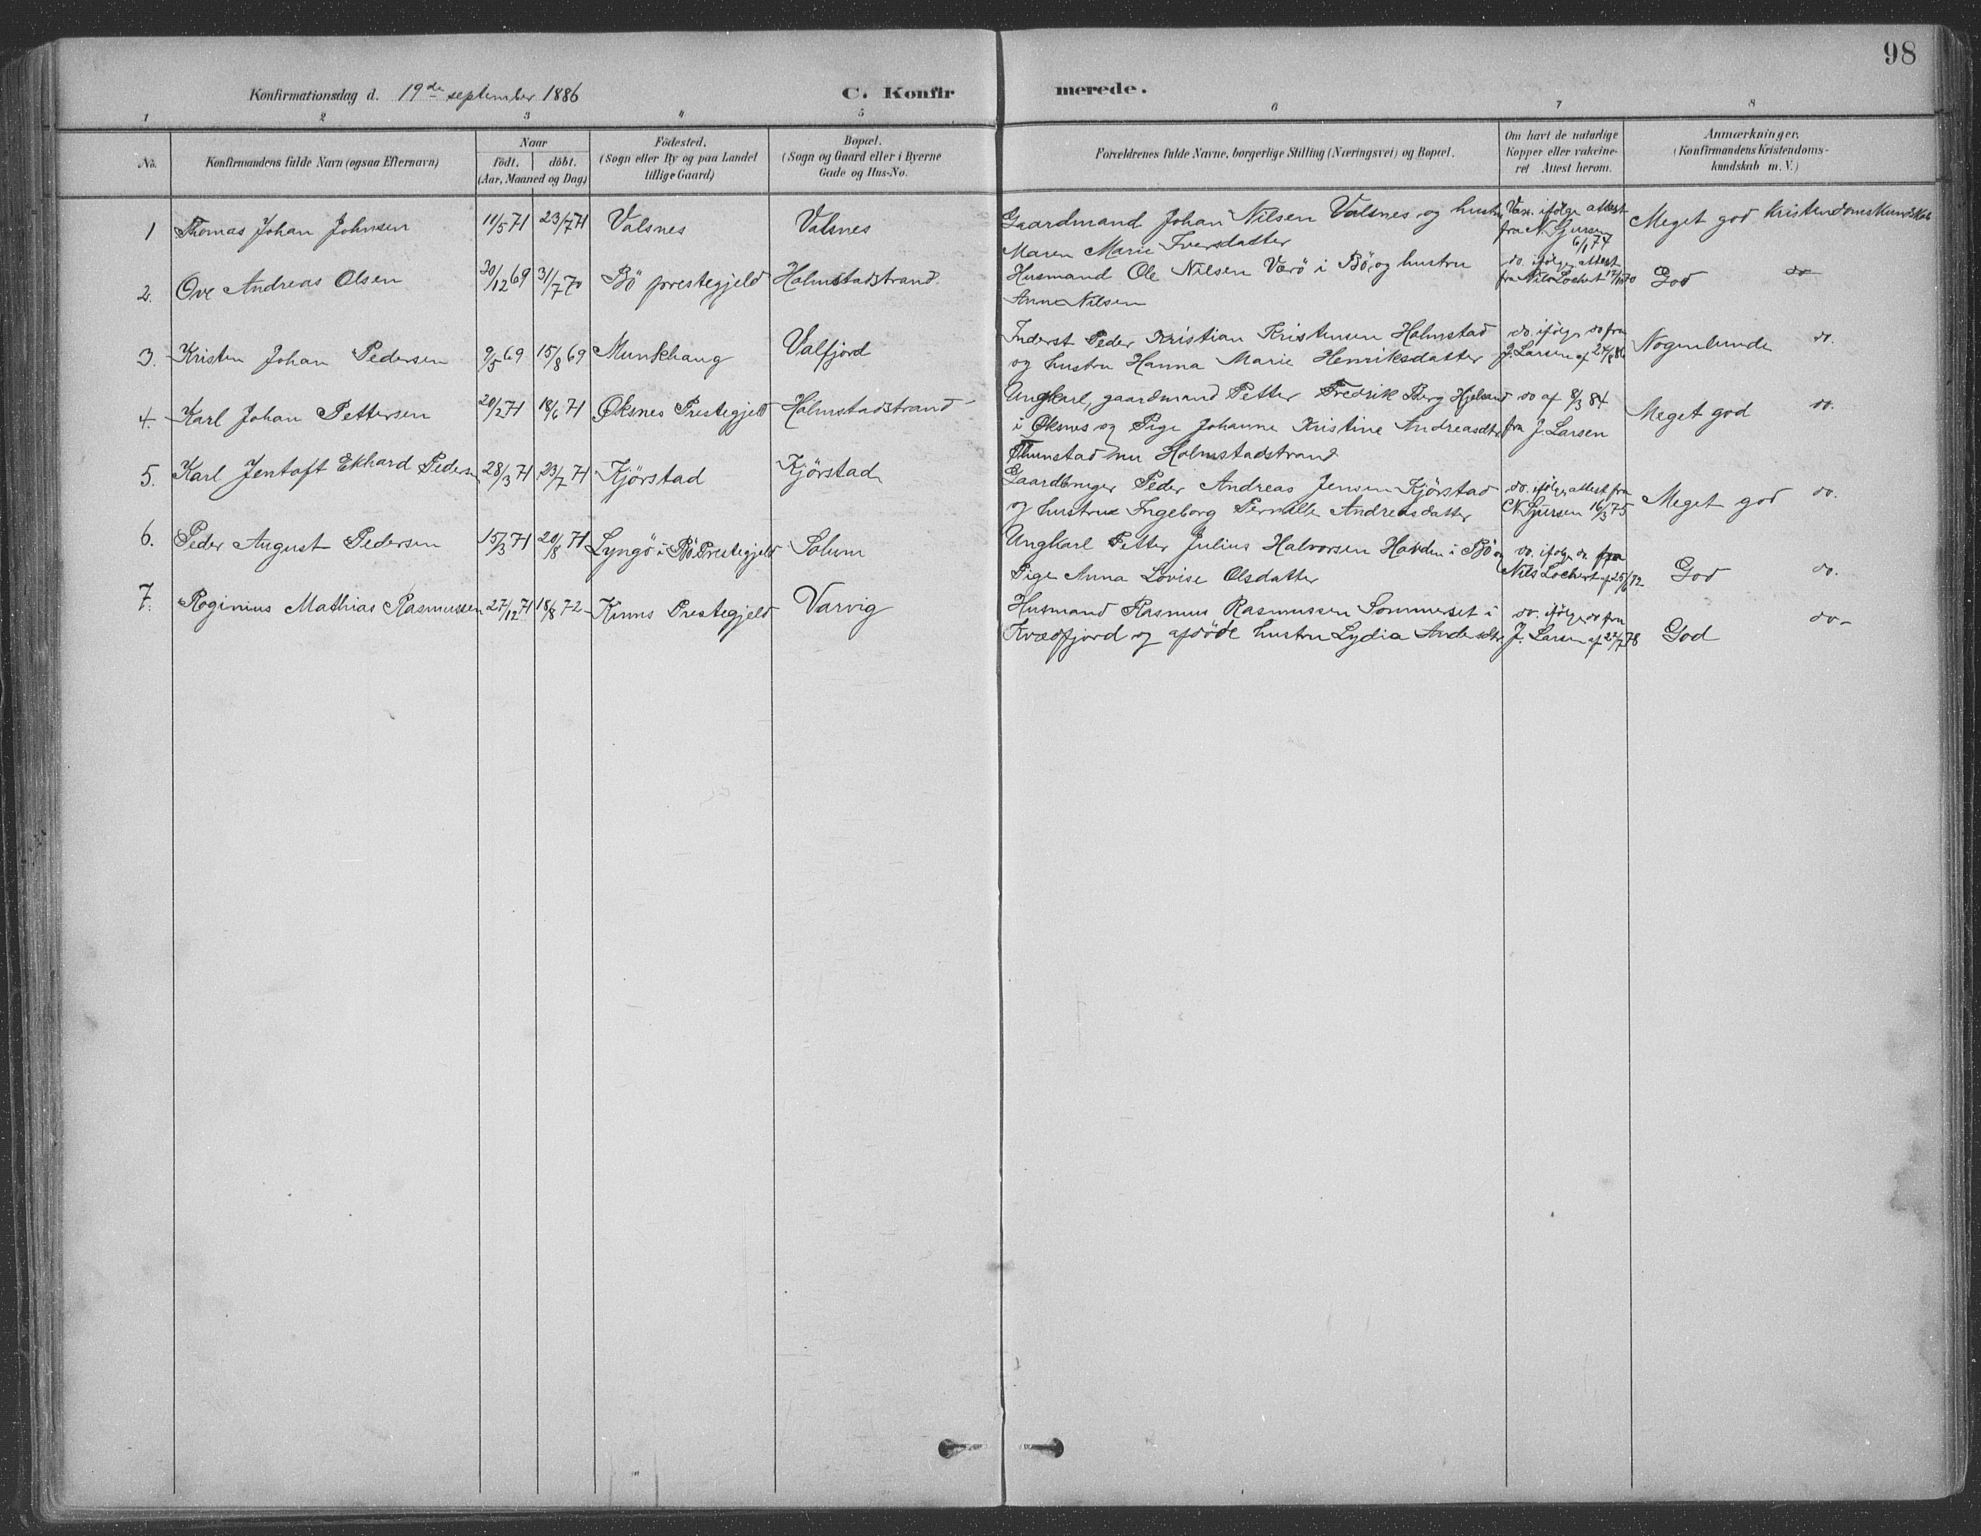 98
Konfirmationsdag d. 19de september 1886 C. Konfir merede.
1 2 3 4 5 6 7 8
No. Konfirmandens fulde Navn (ogsaa Efternavn) Naar födt. döbt. (Aar, Maaned og Dag) Födested. (Sogn eller By og paa Landet tillige Gaard) Bopæl. (Sogn og Gaard eller i Byerne Gade og Hus-No. Forældrenes fulde Navne, borgerlige Stilling (Næringsvei) og Bopæl. Om havt de naturlige Kopper eller vakcineret Attest herom. Anmærkninger, (Konfirmandens Kristendomskundskab m. V.)
1 Thomas Johan Johnsen 11/5 71 23/7 71 Valsnes Valsnes Gaardmand Johan Nilsen Valsnes og hustru Vax. ifölge attest Meget god Kristendomskundskab
Maren Marie Iversdatter fra N. Gjursen 6/1 74
2. Ove Andreas Olsen 30/12 69 31/7 70 Bö prestegjeld Holmstadstrand. Husmand Ole Nilsen Værö i Bö, og hustru do. ifölge Attest God do
Anna Nilsen fra Nils Lockert
3. Kristen Johan Pedersen 9/5 69 15/8 69 Munkhaug Valfjord Inderst Peder Kristian Kristensen Holmstad do. ifölge do fra Nogenlunde do.
og hustru Hanna Marie Henriksdatter J. Larsen af 24/8 86
4. Karl Johan Pettersen 20/2 71 18/6 71 Øksnes Prestegjeld Holmstadstrand Ungkarl, gaardmand Petter Fredrik Berg do af 8/3 84 Meget god do.
i Øksnes og Pige Johanne Kristine Andreasdtr fra J. Larsen
Thunstad nu Holmstadstrand
5. Karl Jentoft Ekhard Peders 28/3 71 23/7 71 Kjörstad Kjörstad Gaardbruger Peder Andreas Jensen Kjörstad do. ifölge attest fra Meget god do.
og hustru Ingeborg Pernille Andreasdatter N. Gjursen 16/3 75
6. Peder August Pedersen 15/3 71 20/8 71 Lyngö i Bö Prestegjeld Solum Ungkarl Petter Julius Halvorsen Havden i Bö og do. ifölge do. fra God do.
Pige Anna Lovise Olsdatter Nils Lockert af 25/6 72
7. Roginius Mathias Rasmussen 27/12 71 18/8 72 Kinns Prestegjeld Varvig Husmand Rasmus Rasmussen Sommerset i do. ifölge do fra God do
Kvædfjord og afdöde hustru Lydia Andersdtr J. Larsen af 22/7 78